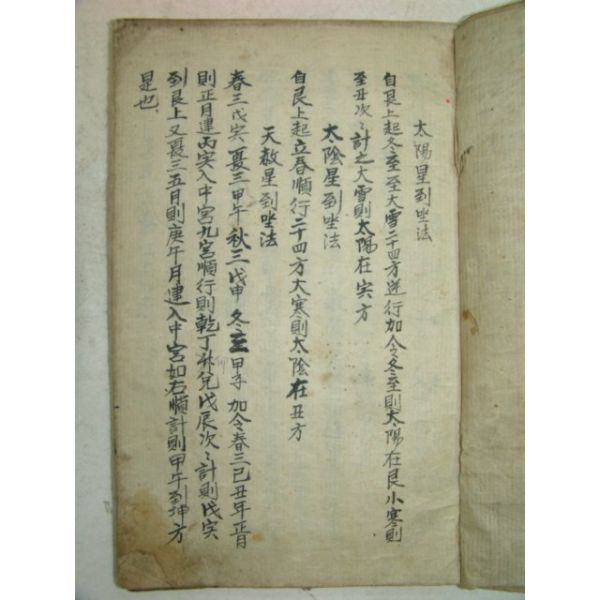 太陽星到坐法
自艮上起冬至至大雪二十四方逆行加令冬至則太陽在艮小寒則
至丑次〻計之大雪則太陽在亥方
太陰星到坐法
自艮上起立春順行二十四方大寒則太陰在丑方
天赦星到坐法
春三戊寅夏三甲午秋三戊申冬三甲子加令春三己丑年正月
則正月建丙寅入中宮九宮順行則乾丁卯兌戊辰次〻計則戊寅
到艮上又夏三五月則庚午月建入中宮如右順計則甲午到坤方
是也